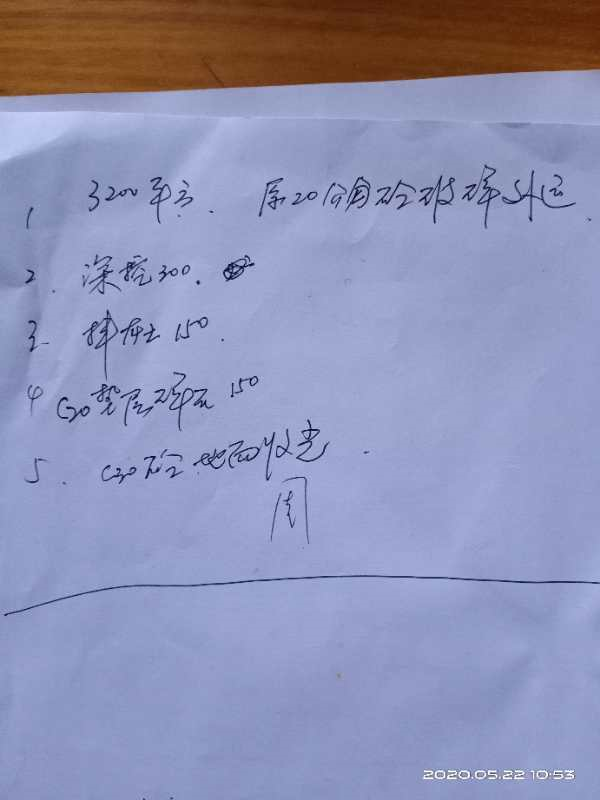 1 3200平方. 原20公分砼破碎外运.
2. 深挖300.
3. 拌灰土150.
4 C20垫层碎石150
5. C30砼地面收光.
周
2020.05.22 10:53